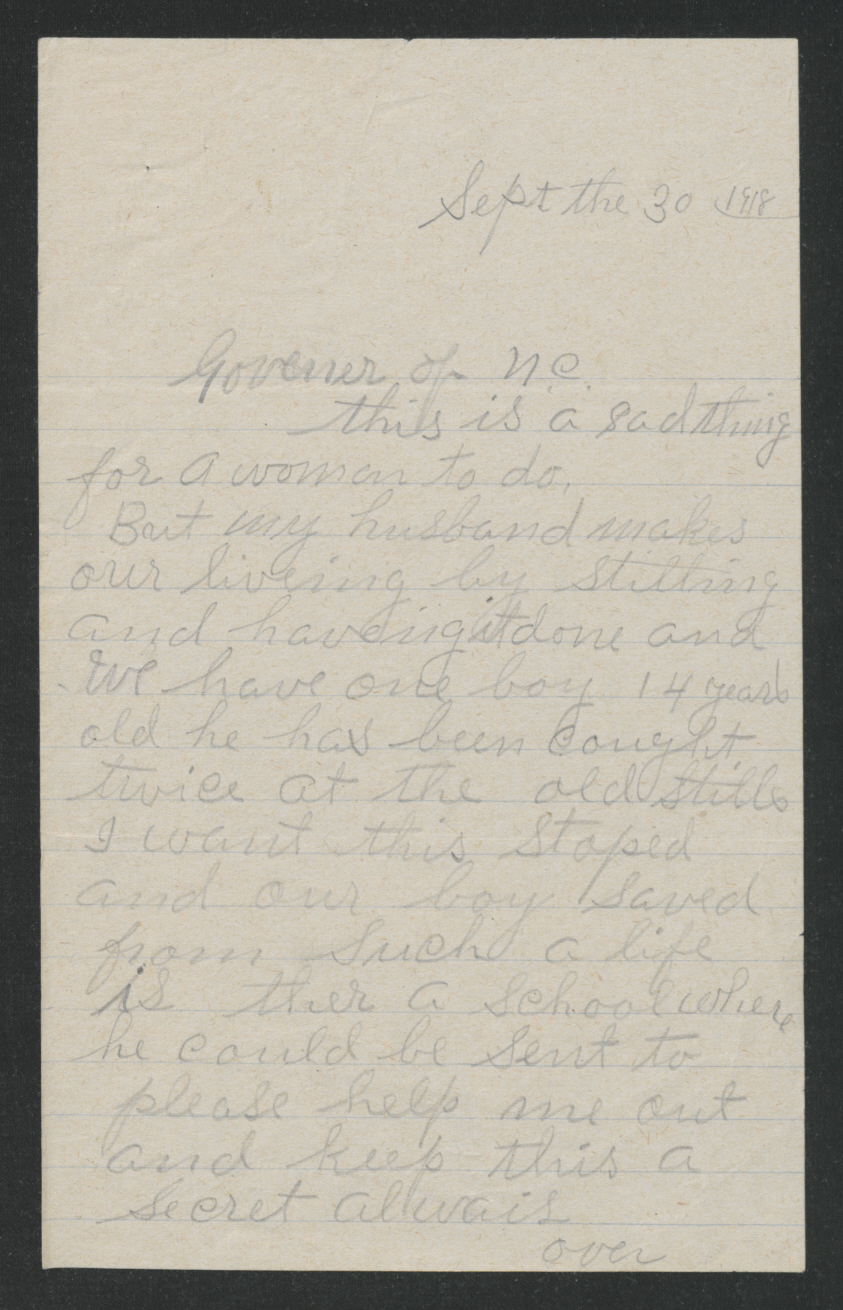 Sept the 30 1918
Govener of N.C.
this is a sad thing
for a woman to do.
But my husband makes
our liveing by stilling
and haveing it done and
We have one boy 14 years
old he has been cought
twice at the old stills
I want this stoped
and our boy saved
from such a life
is ther a school where
he could be sent to
please help me out
and keep this a
secret alwais
over